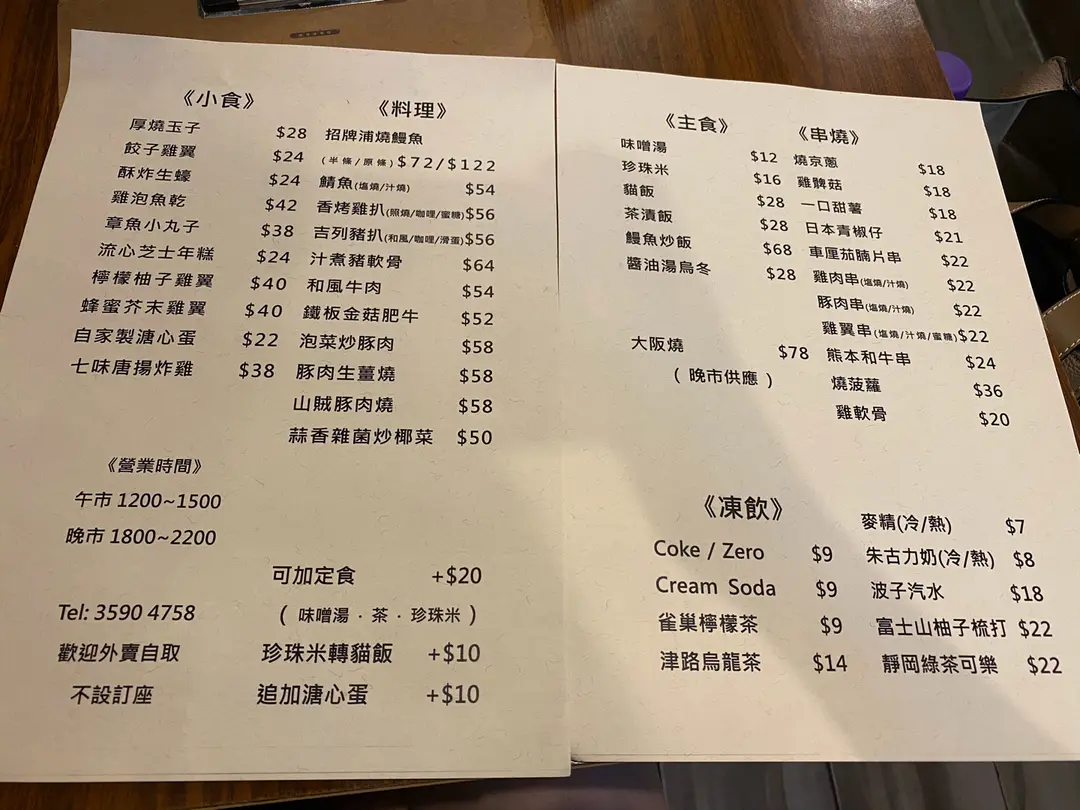 《小食》
厚燒玉子 $28
餃子雞翼 $24
酥炸生蠔 $24
雞泡魚乾 $42
章魚小丸子 $38
流心芝士年糕 $24
檸檬柚子雞翼 $40
蜂蜜芥末雞翼 $40
自家製溏心蛋 $22
七味唐揚炸雞 $38
《料理》
招牌浦燒鰻魚
(半條/原條) $72/$122
鯖魚(塩燒/汁燒) $54
香烤雞扒(照燒/咖哩/蜜糖) $56
吉列豬扒(和風/咖哩/滑蛋) $56
汁煮豬軟骨 $64
和風牛肉 $54
鐵板金菇肥牛 $52
泡菜炒豚肉 $58
豚肉生薑燒 $58
山賊豚肉燒 $58
蒜香雜菌炒椰菜 $50
《營業時間》
午市 1200~1500
晚市 1800~2200
Tel: 3590 4758
歡迎外賣自取
不設訂座
可加定食 +$20
( 味噌湯．茶．珍珠米 )
珍珠米轉貓飯 +$10
追加溏心蛋 +$10
《主食》
味噌湯 $12
珍珠米 $16
貓飯 $28
茶漬飯 $28
鰻魚炒飯 $68
醬油湯烏冬 $28
大阪燒 $78
( 晚市供應 )
《串燒》
燒京蔥 $18
雞髀菇 $18
一口甜薯 $18
日本青椒仔 $21
車厘茄腩片串 $22
雞肉串(塩燒/汁燒) $22
豚肉串(塩燒/汁燒) $22
雞翼串(塩燒/汁燒/蜜糖) $22
熊本和牛串 $24
燒菠蘿 $36
雞軟骨 $20
《凍飲》
Coke / Zero $9
Cream Soda $9
雀巢檸檬茶 $9
津路烏龍茶 $14
麥精(冷/熱) $7
朱古力奶(冷/熱) $8
波子汽水 $18
富士山柚子梳打 $22
靜岡綠茶可樂 $22